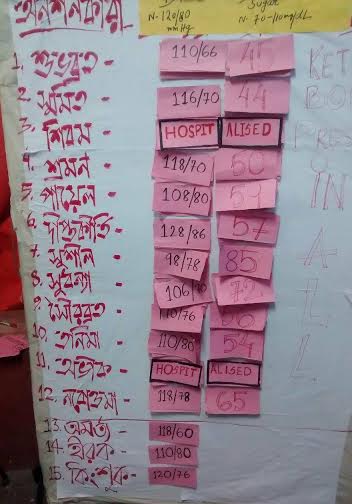 অনশনকারী
N-120/80 mmHg
Sugar
N-70-110mg/dL
1. শুভব্রত - 110/66
2. সুমিত - 116/70 44
3. শিবম HOSPIT ALISED
4. শ্রমন - 118/70 50
5. পায়েল - 108/80 53
6. দীপ্তকীর্তি - 128/86 57
7. সুশীল - 98/78 85
8. সুবন্যা - 106/70 72
9. সৌরব্রত - 110/76
10. তনিমা - 110/80 54
11. অভীক - HOSPIT ALISED
12. নবোত্তমা - 118/78 65
13. অমর্ত্য - 118/60
14. হীরক - 110/80
15. কিংশুক - 120/76
KET
BO
PRES
IN
A
L
L